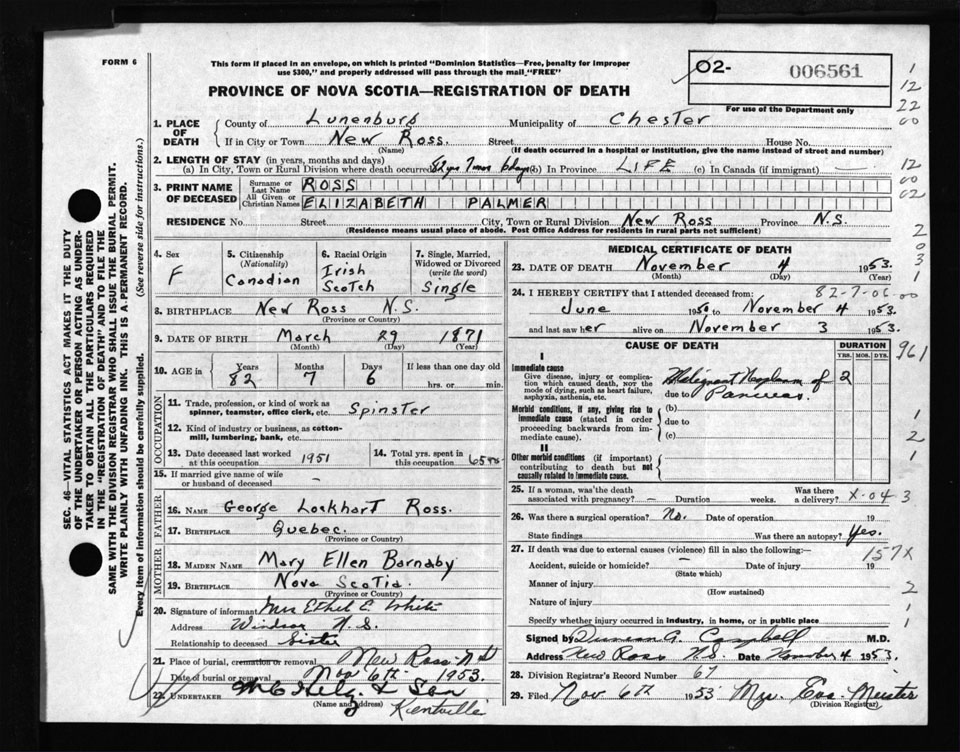 FORM 6
This form if placed in an envelope, on which is printed "Dominion Statistics—Free, penalty for improper
use $300," and properly addressed will pass through the mail "FREE"
O2- 006561
For use of the Department only
PROVINCE OF NOVA SCOTIA—REGISTRATION OF DEATH
1. PLACE OF DEATH
County of Lunenburg Municipality of Chester
If in City or Town New Ross. Street House No.
(Name) (If death occurred in a hospital or institution, give the name instead of street and number)
2. LENGTH OF STAY (in years, months and days)
(a) In City, Town or Rural Division where death occurred (b) In Province LIFE (c) In Canada (if immigrant) —
3. PRINT NAME OF DECEASED
Surname or Last Name ROSS
All Given or Christian Names ELIZABETH PALMER
RESIDENCE No. Street City, Town or Rural Division New Ross Province N.S.
(Residence means usual place of abode. Post Office Address for residents in rural parts not sufficient)
4. Sex F
5. Citizenship (Nationality) Canadian
6. Racial Origin Irish Scotch
7. Single, Married, Widowed or Divorced (write the word) Single
8. BIRTHPLACE New Ross N.S.
(Province or Country)
9. DATE OF BIRTH March 29 1871
(Month) (Day) (Year)
10. AGE in Years 82 Months 7 Days 6 If less than one day old
hrs. or min.
OCCUPATION
11. Trade, profession, or kind of work as spinner, teamster, office clerk, etc. Spinster
12. Kind of industry or business, as cotton-mill, lumbering, bank, etc.
13. Date deceased last worked at this occupation 1951
14. Total yrs. spent in this occupation 65
15. If married give name of wife or husband of deceased —
FATHER
16. Name George Lockhart Ross.
17. Birthplace Quebec.
(Province or Country)
MOTHER
18. Maiden Name Mary Ellen Barnaby
19. Birthplace Nova Scotia.
(Province or Country)
20. Signature of informant Mrs Ethel E. White
Address Windsor N.S.
Relationship to deceased Sister
21. Place of burial, cremation or removal New Ross N S
Date of burial or removal Nov 6th 1953.
22. UNDERTAKER & Son
(Name and address) Kentville
MEDICAL CERTIFICATE OF DEATH
23. DATE OF DEATH November 4 1953.
(Month) (Day) (Year)
24. I HEREBY CERTIFY that I attended deceased from: 82-7-06-00
June 1950 to November 4 1953.
and last saw her alive on November 3 1953.
CAUSE OF DEATH
DURATION
YRS. MOS. DYS.
I
Immediate cause
Give disease, injury or complication which caused death, NOT the mode of dying, such as heart failure, asphyxia, asthenia, etc.
Malignant Neoplasm of 2
due to Pancreas.
Morbid conditions, if any, giving rise to immediate cause (stated in order proceeding backwards from immediate cause).
(b)
due to
(c)
II
Other morbid conditions (if important) contributing to death but not causally related to immediate cause.
25. If a woman, was the death associated with pregnancy? — Duration weeks. Was there a delivery? X-04
26. Was there a surgical operation? No. Date of operation 19
State findings Was there an autopsy? Yes.
27. If death was due to external causes (violence) fill in also the following:— 157X
Accident, suicide or homicide? — Date of injury 19
(State which)
Manner of injury
(How sustained)
Nature of injury
Specify whether injury occurred in industry, in home, or in public place
Signed by Duncan A. Campbell M.D.
Address New Ross N.S. Date November 4 1953.
28. Division Registrar's Record Number 67
29. Filed Nov 6th 1953 Mrs. Eva Meister
(Division Registrar)
SEC. 46—VITAL STATISTICS ACT MAKES IT THE DUTY
OF THE UNDERTAKER OR PERSON ACTING AS UNDER-
TAKER TO OBTAIN ALL THE PARTICULARS REQUIRED
IN THE "REGISTRATION OF DEATH" AND TO FILE THE
SAME WITH THE DIVISION REGISTRAR WHO SHALL ISSUE THE BURIAL PERMIT.
WRITE PLAINLY WITH UNFADING INK. THIS IS A PERMANENT RECORD.
Every item of information should be carefully supplied. (See reverse side for instructions.)
1
12
22
00
12
00
02
2
0
3
1
961
1
2
1
3
2
1
1